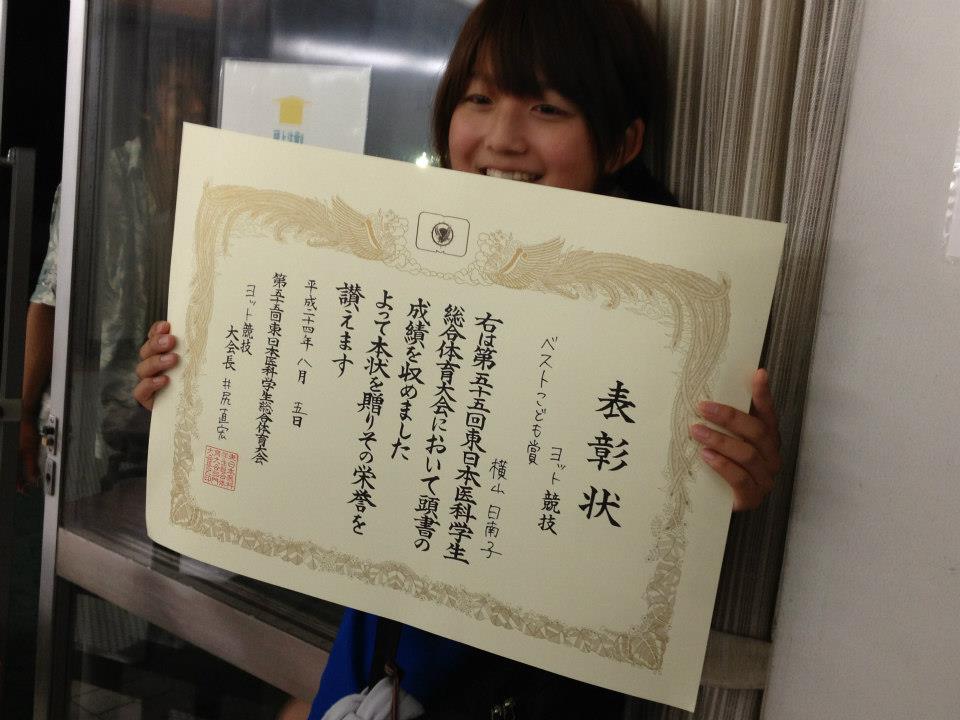 表彰状
ヨット競技
ベストこども賞
横山日南子
右は第五十五回東日本医科学生
総合体育大会において頭書の
成績を収めました
よって本状を贈りその栄誉を
讃えます
平成二十四年八月五日
第五十五回東日本医科学生総合体育大会
ヨット競技
大会長 井尻直宏